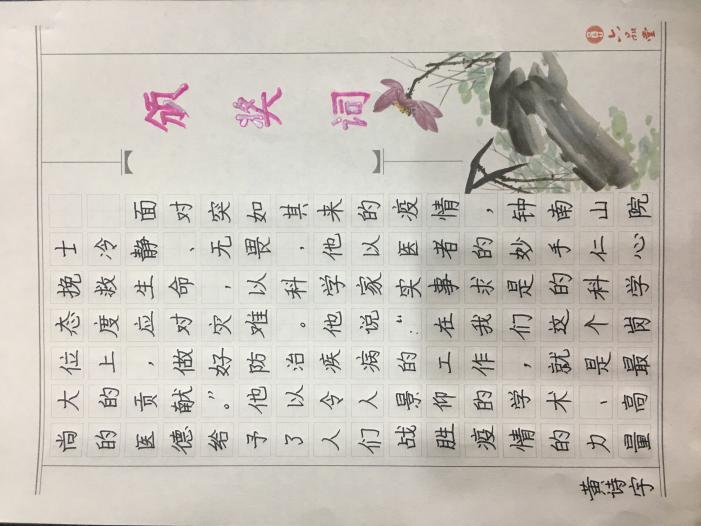 六品堂
颁奖词
面对突如其来的疫情,钟南山院
士冷静、无畏,他以医者的妙手仁心
挽救生命,以科学家实事求是的科学
态度应对灾难。他说:“在我们这个岗
位上,做好防治疾病的工作,就是最
大的贡献。”他以令人景仰的学术、高
尚的医德给予了人们战胜疫情的力量
黄诗字